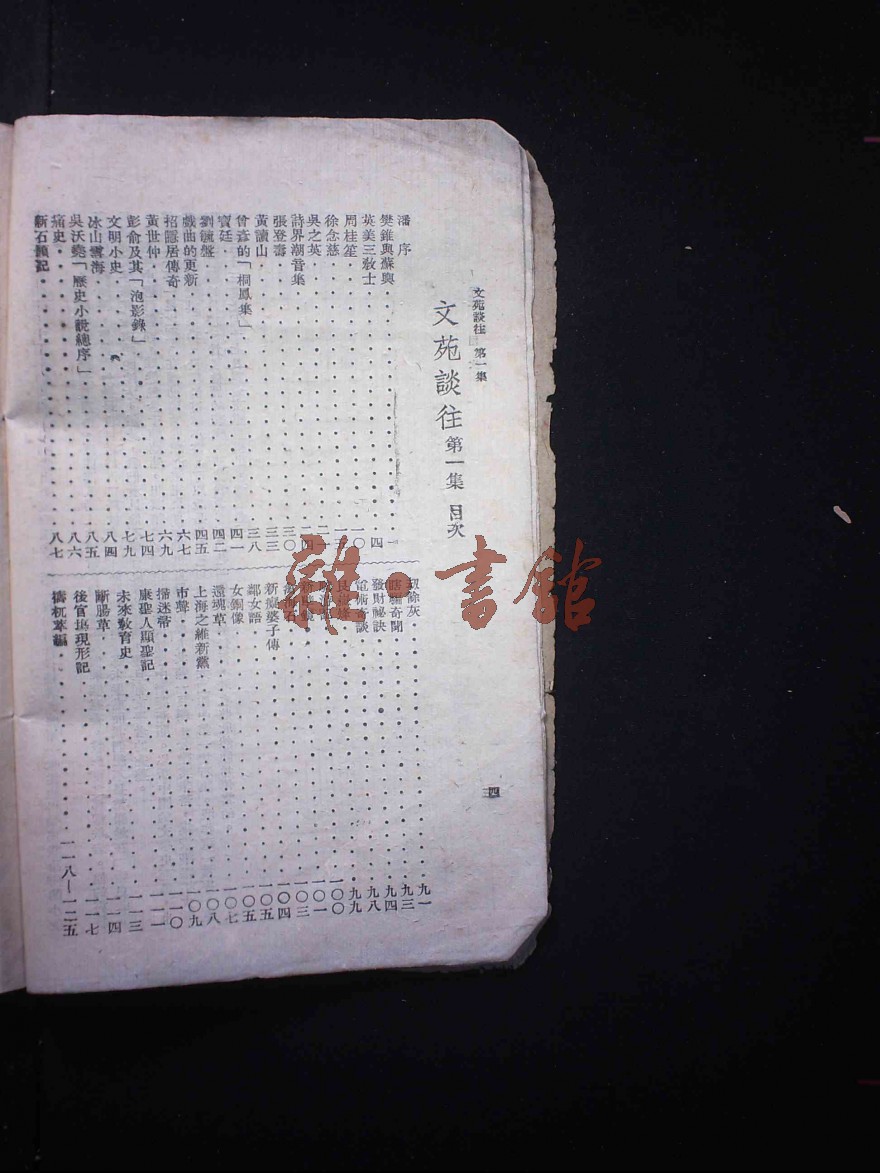 文苑談往 第一集
四
文苑談往 第一集 目次
潘序
樊錐與蘇輿 一
英美三教士 四
周桂笙 一〇
徐念慈 一三
吳之英 二一
詩界潮音集 二四
張登壽 三〇
黃讀山 三三
曾彥的「桐鳳集」 三八
寶廷 四一
劉毓盤 四二
戲曲的更新 四五
招隱居傳奇 六七
黃世仲 六九
彭俞及其「泡影錄」 七四
文明小史 七九
冰山雪海 八四
吳沃堯「歷史小說總序」 八五
痛史 八六
新石頭記 八七
劫餘灰 九一
瞎騙奇聞 九三
發財祕訣 九四
電術奇談 九八
九九
一〇〇
一〇一
一〇三
新癡婆子傳 一〇四
鄰女語 一〇五
女銅像 一〇五
還魂草 一〇七
上海之維新黨 一〇八
市聲 一〇九
掃迷帚 一一〇
康聖人顯聖記 一一一
未來教育史 一一三
斷腸草 一一四
後官場現形記 一一七
檮杌萃編 一一八—一二五
雜·書館